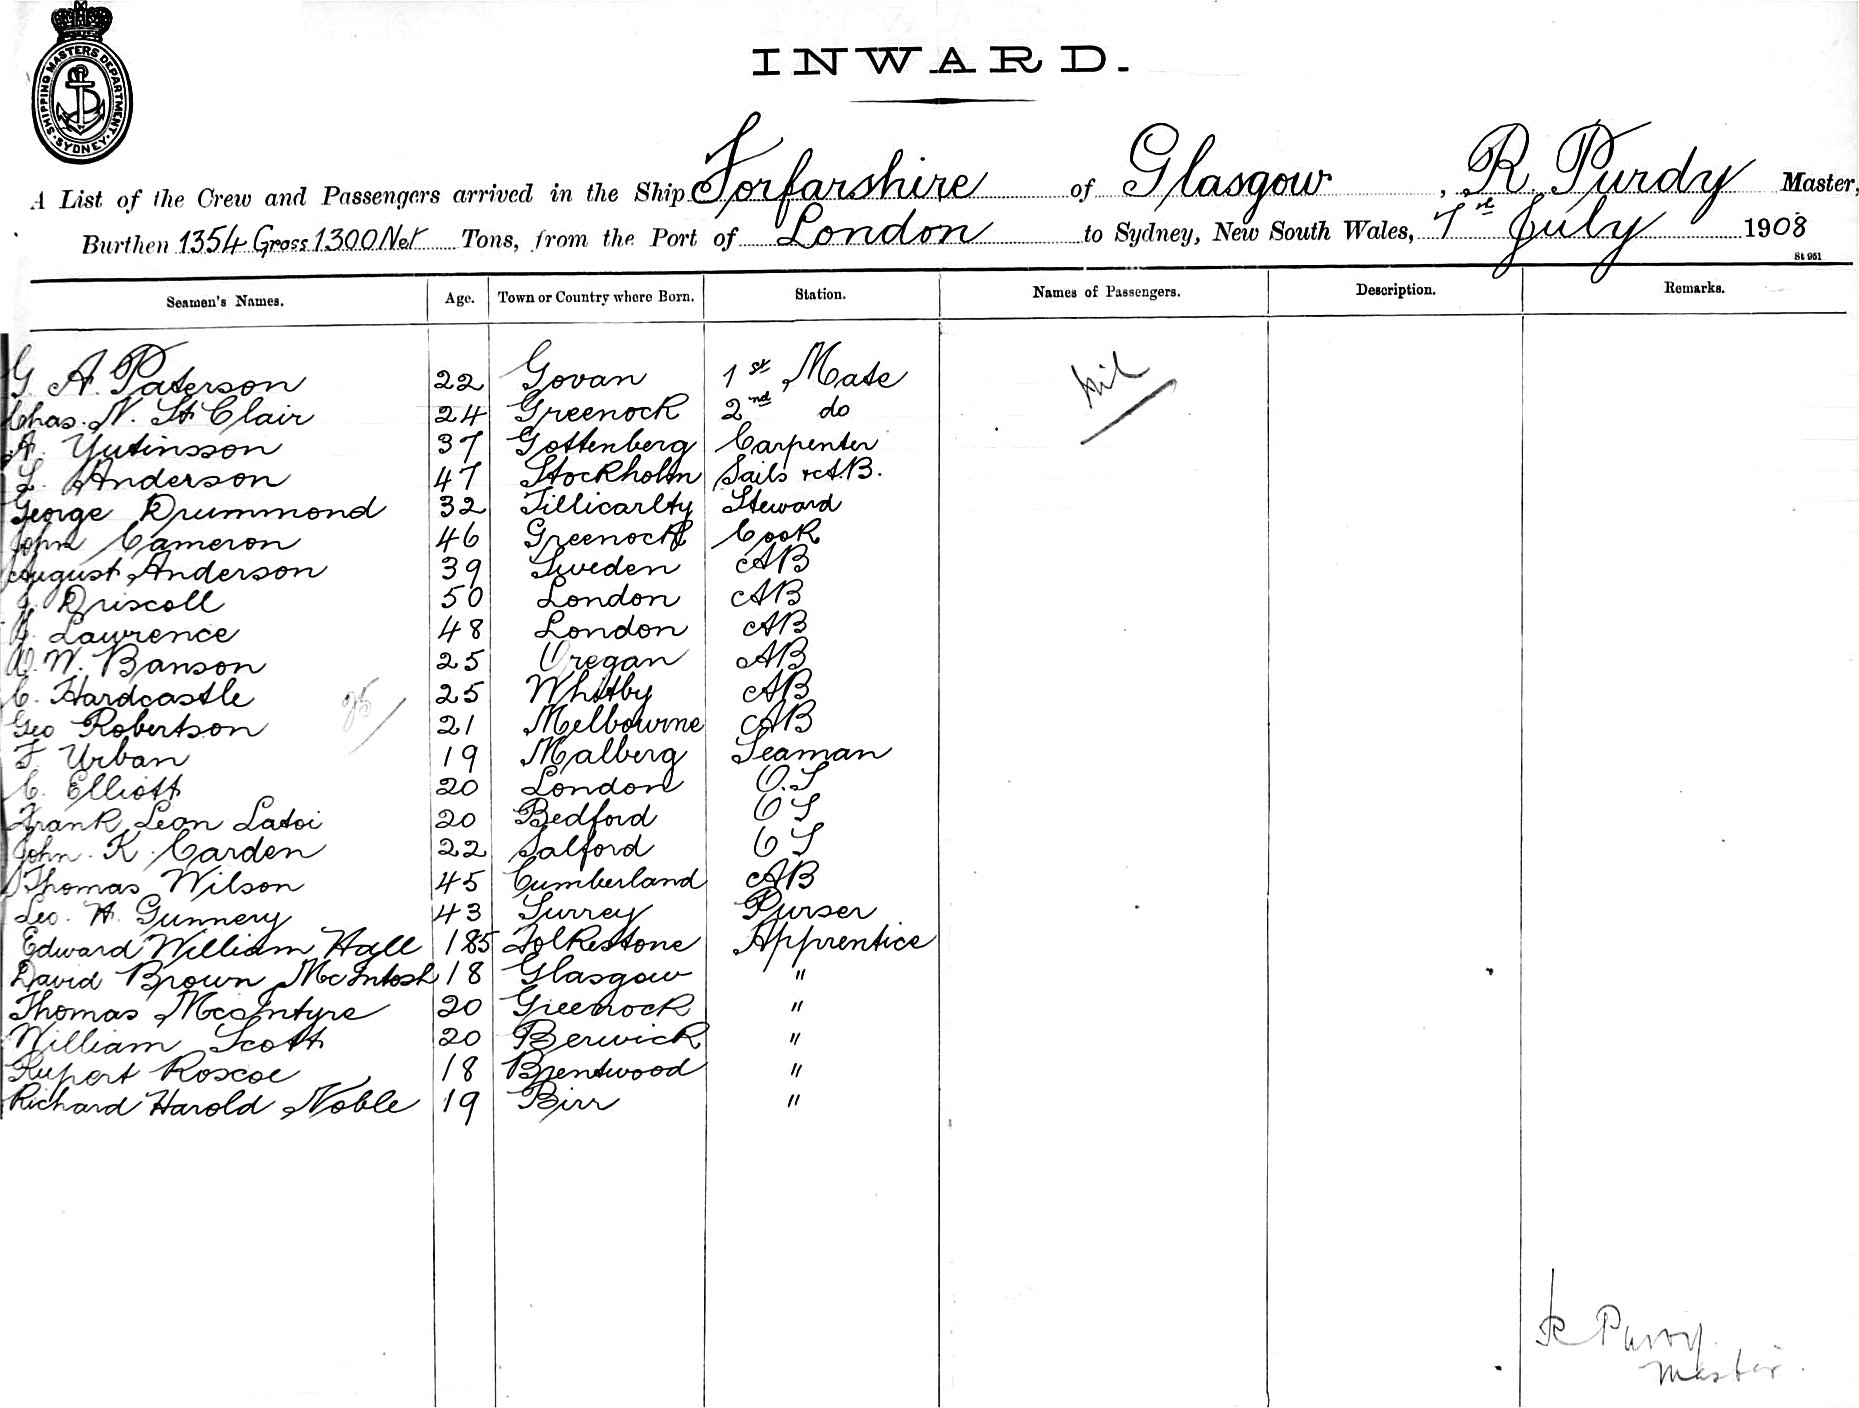 SHIPPING MASTERS DEPARTMENT · SYDNEY ·
INWARD.
A List of the Crew and Passengers arrived in the Ship Forfarshire of Glasgow, R. Purdy Master,
Burthen 1354 Gross 1300 Net Tons, from the Port of London to Sydney, New South Wales, 7th July 1908
St 951
Seamen's Names. Age. Town or Country where Born. Station. Names of Passengers. Description. Remarks.
G. A. Paterson 22 Govan 1st Mate Nil
Chas. N. St Clair 24 Greenock 2nd do
A. Yutinsson 37 Gottenberg Carpenter
L. Anderson 47 Stockholm Sails & A.B.
George Drummond 32 Tillicarlty Steward
John Cameron 46 Greenock Cook
August Anderson 39 Sweden AB
J. Driscoll 50 London AB
G. Lawrence 48 London AB
W. Banson 25 Oregan AB
C. Hardcastle 25 25 Whitby AB
Geo Robertson 21 Melbourne AB
F. Urban 19 Malberg Seaman
C. Elliott 20 London O.S
Frank Leon Latoi 20 Bedford O S
John. K. Carden 22 Salford O S
Thomas Wilson 45 Cumberland AB
Geo. H. Gunnery 43 Surrey Purser
Edward William Hall 185 Folkestone Apprentice
David Brown McIntosh 18 Glasgow "
Thomas McIntyre 20 Greenock "
William Scott 20 Berwick "
Rupert Roscoe 18 Brentwood "
Richard Harold Noble 19 Birr "
R Purdy.
Master.